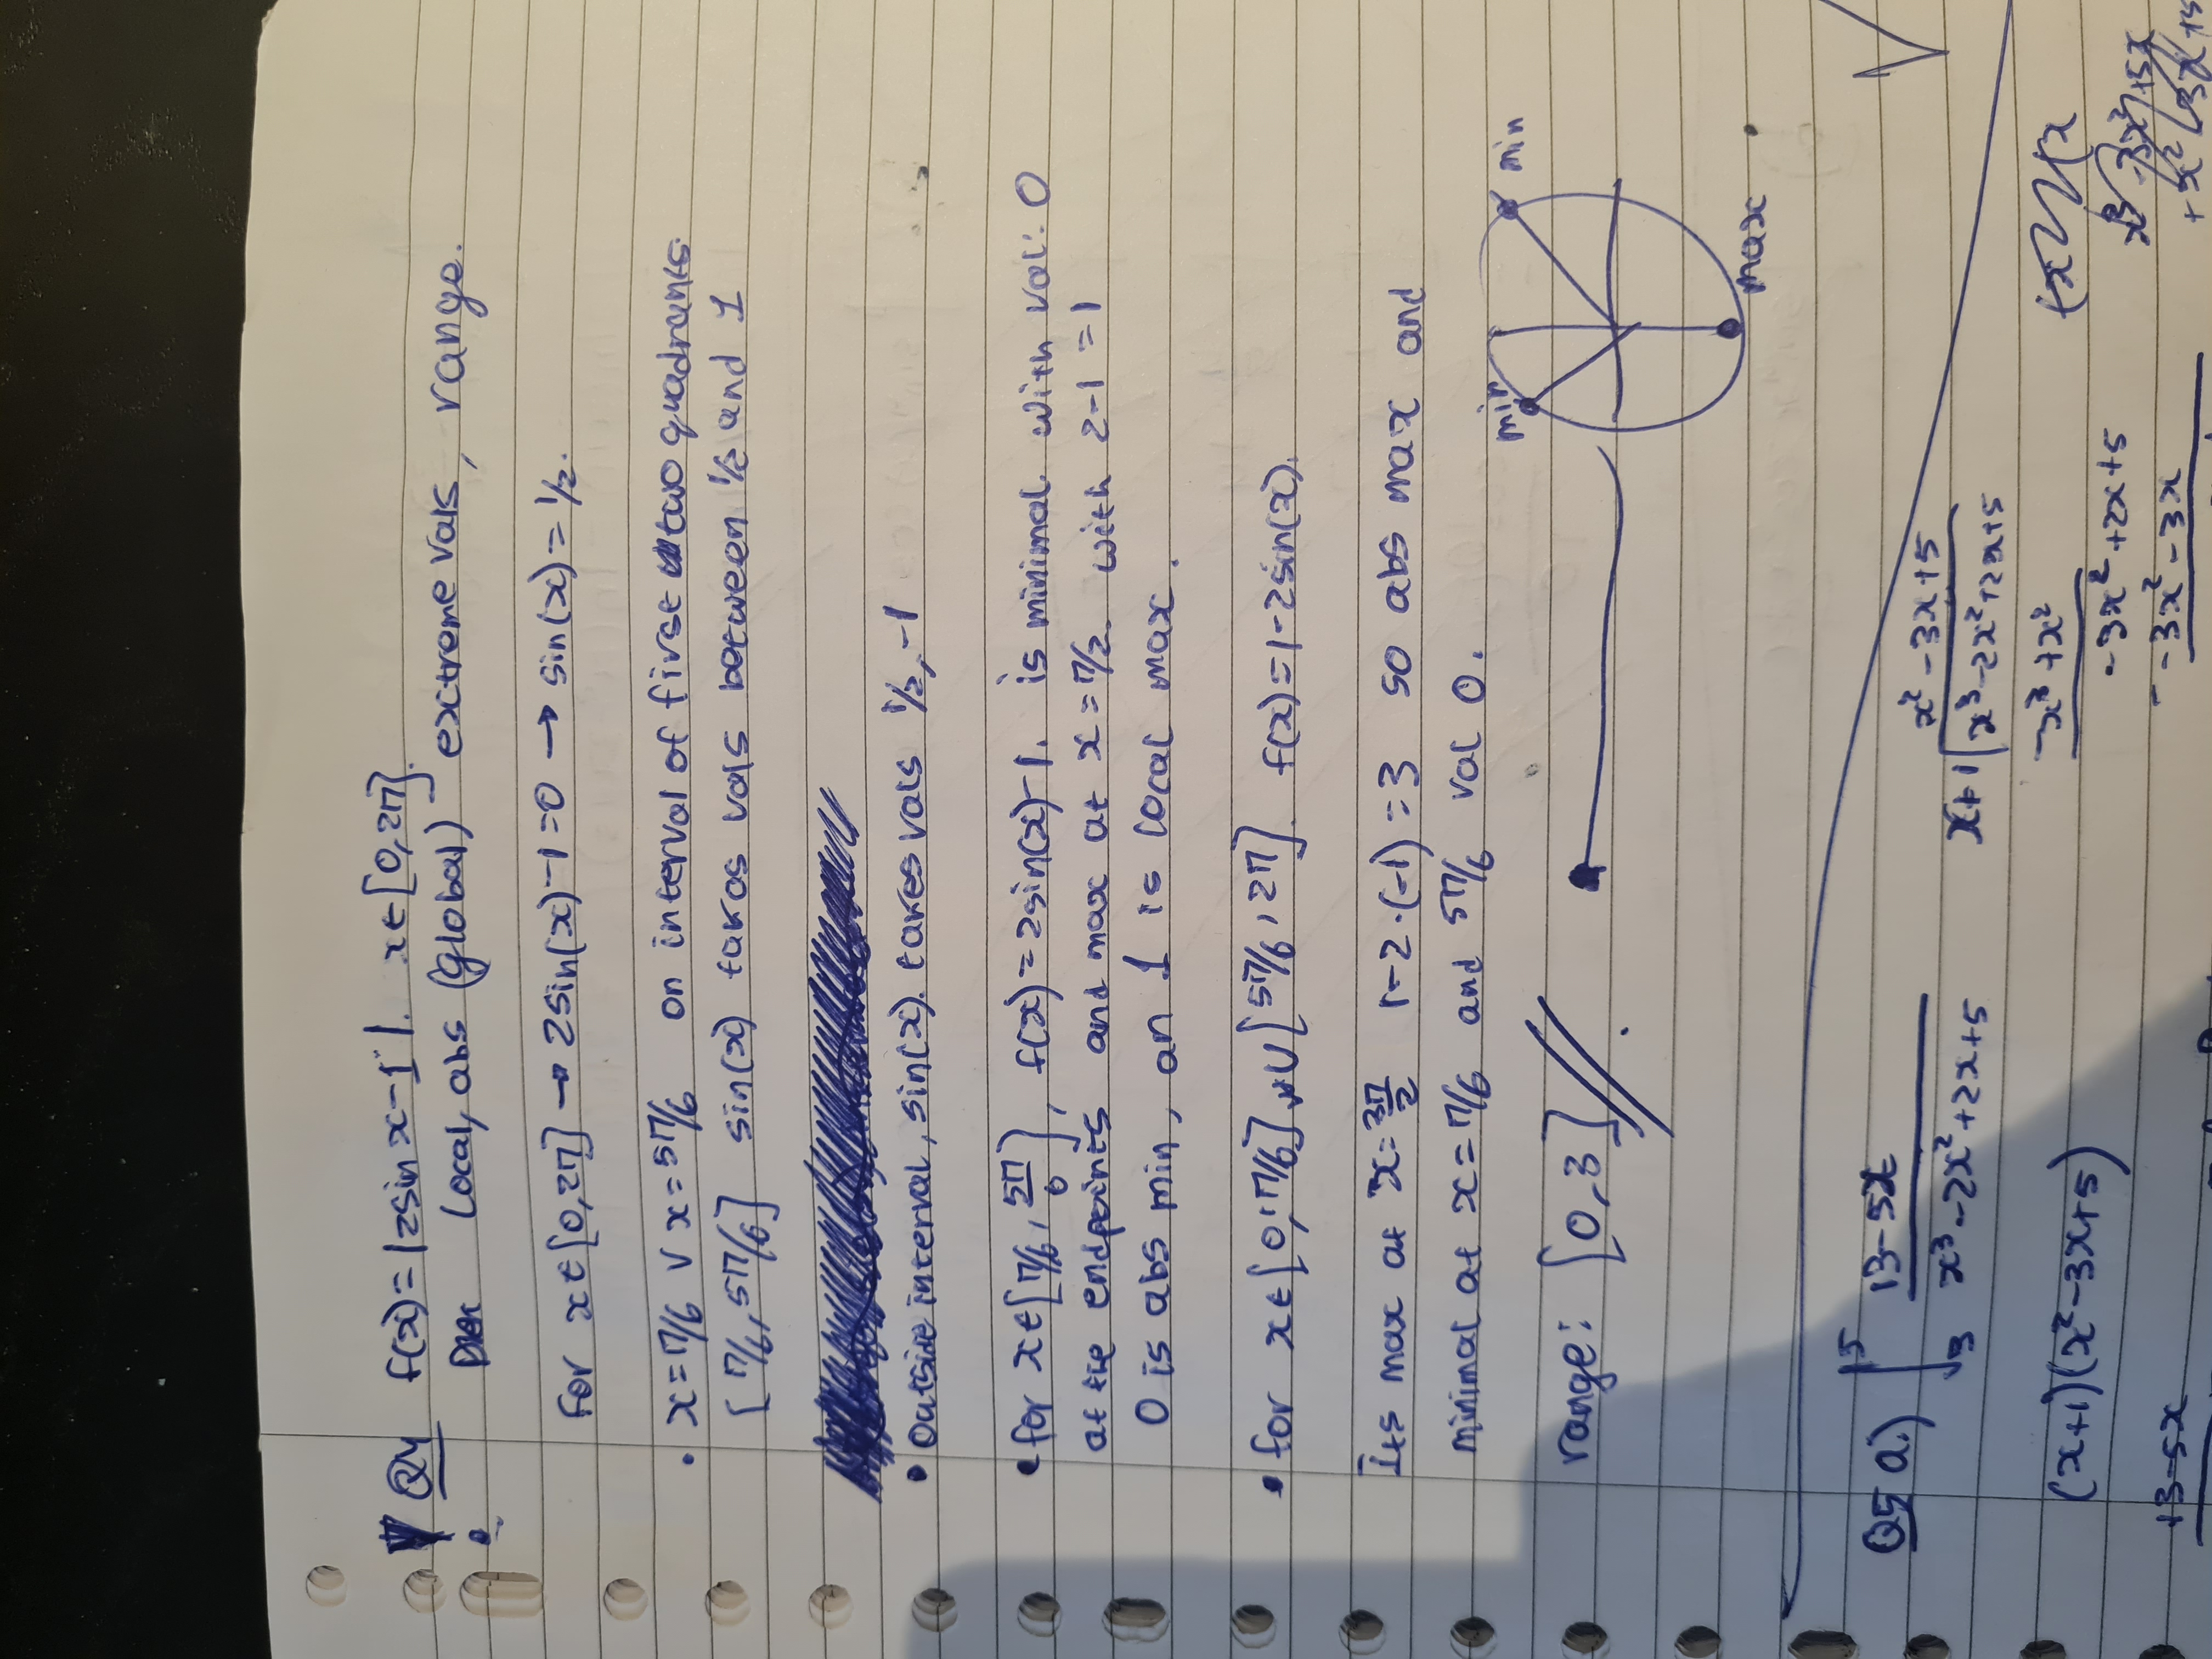 Q4 f(x)=|2sin x-1|. x∈[0,2π].
Local, abs (global) extreme vals, range.
for x∈[0,2π] → 2sin(x)-1=0 → sin(x)=1/2.
• x=π/6 ∨ x=5π/6 on interval of first two quadrants
[π/6, 5π/6] sin(x) takes vals between 1/2 and 1
• Outside interval, sin(x). takes vals 1/2,-1
• for x∈[π/6, 5π/6], f(x)=2sin(x)-1. is minimal with val: 0
at the endpoints and max at x=π/2. with 2-1=1
0 is abs min, an 1 is local max.
• for x∈[0,π/6] ∪ [5π/6, 2π]. f(x)=1-2sin(x).
Its max at x=3π/2 1-2·(-1)=3 so abs max and
minimal at x=π/6 and 5π/6 val 0.
min min
range: [0,3]//.
max
Q5 a.) ∫₃⁵ (13-5x)/(x³-2x²+2x+5)
x²-3x+5
x+1 | x³-2x²+2x+5
-x³+x²
(x+1)(x²-3x+5)
-3x²+2x+5
- -3x²-3x
13-5x